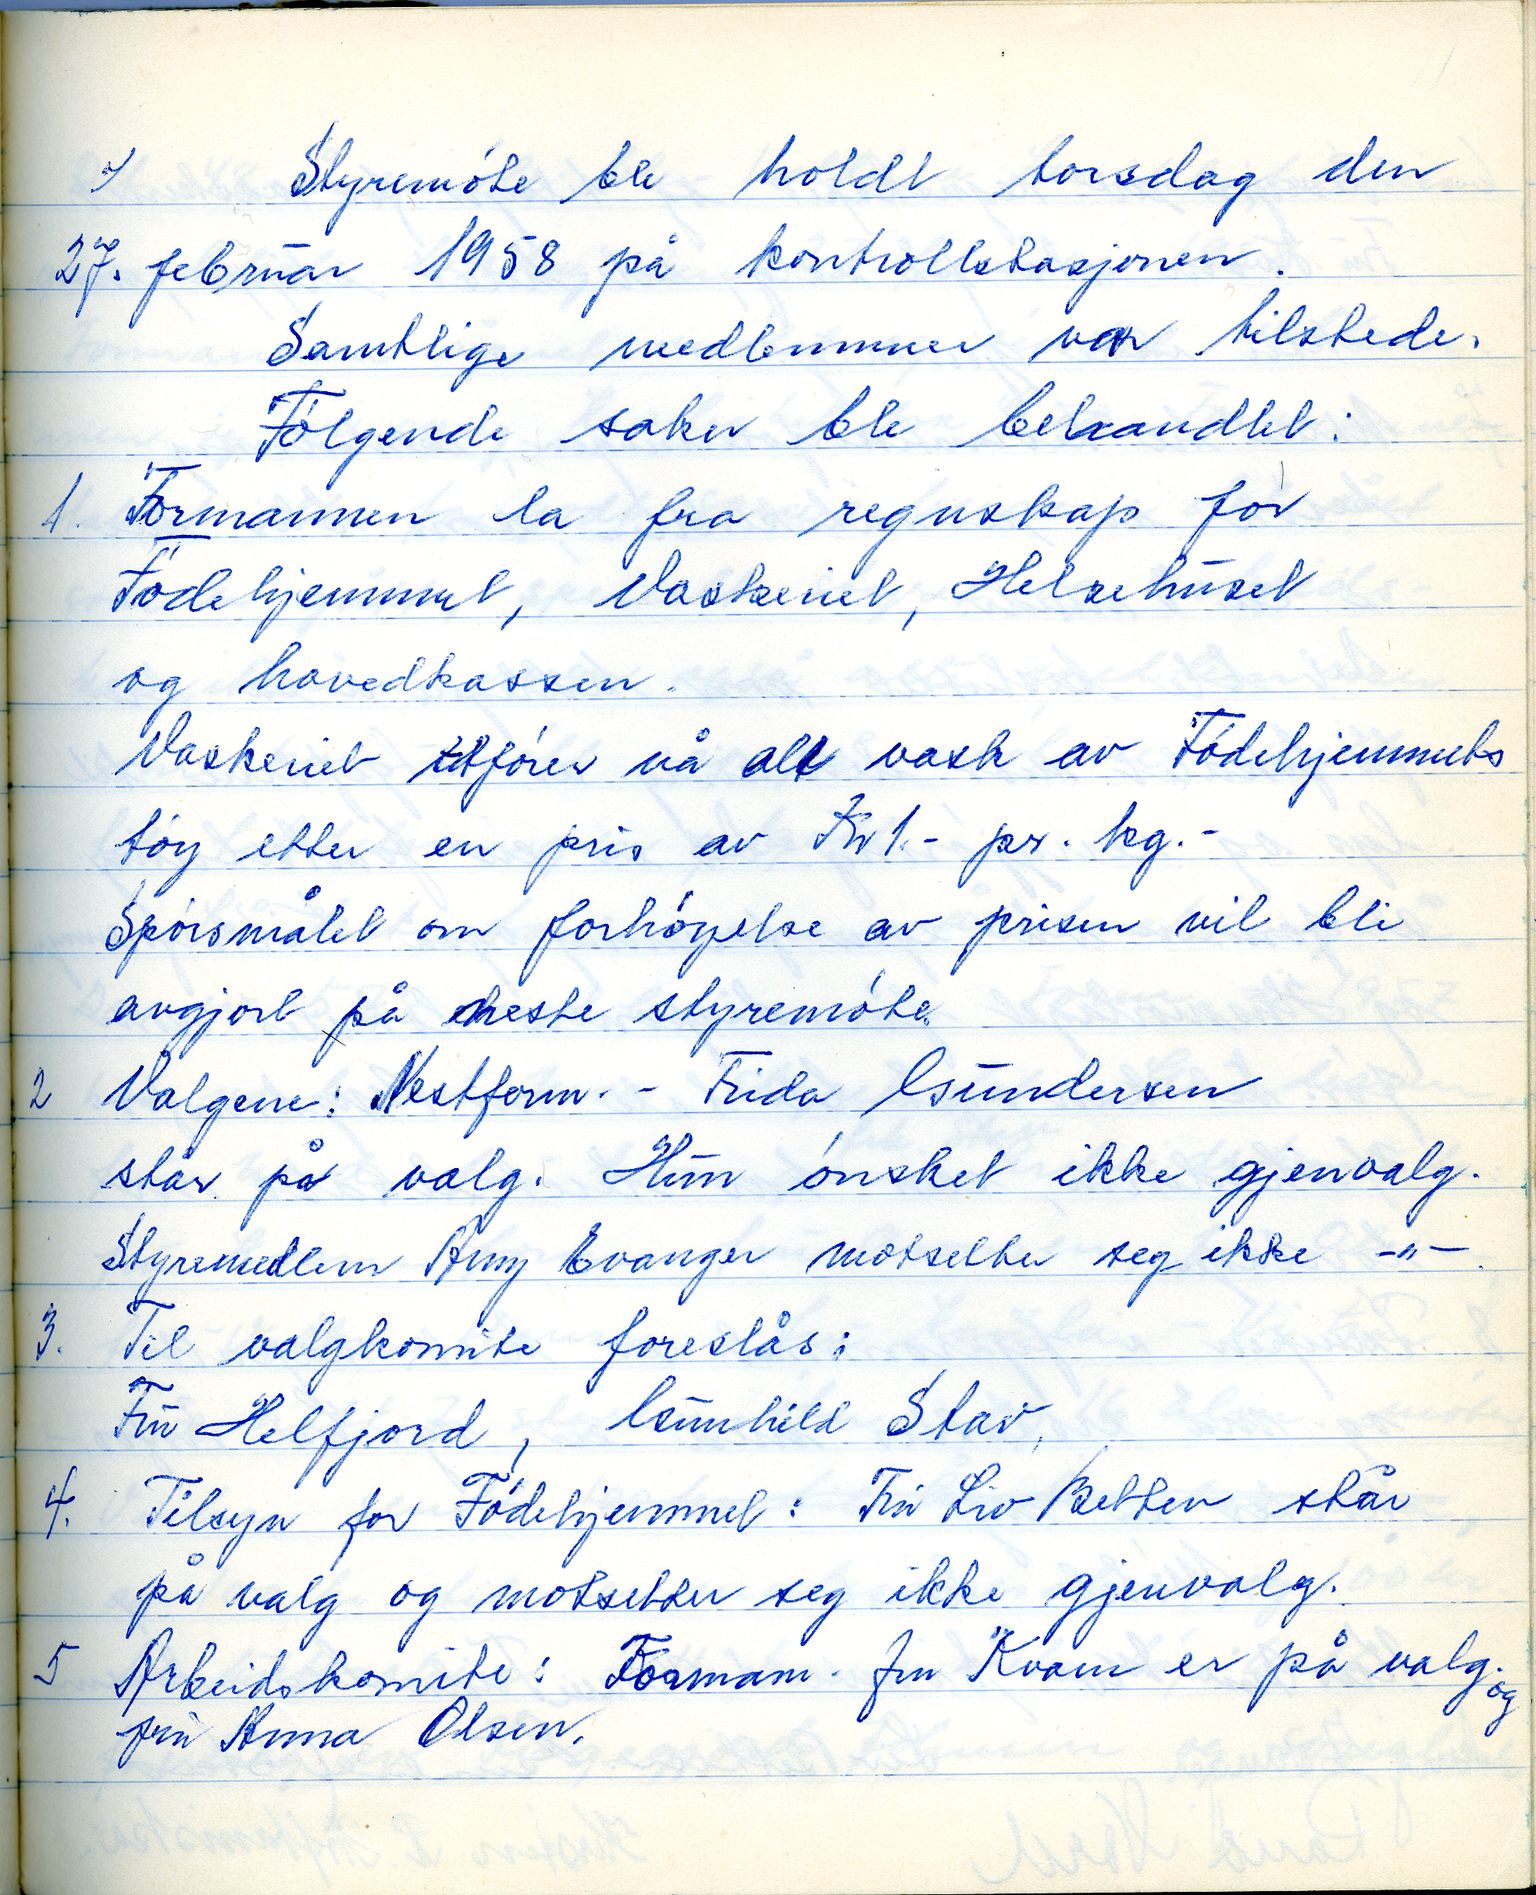 Styremóte ble holdt torsdag den
27. februar 1958 på kontrollstasjonen.
Samtlige medlemmer var tilstede.
Fólgende saker ble behandlet:
1. Formannen la fra regnskap for
Fódehjemmet, Vaskeriet, Helsehuset
og hovedkassen.
Vaskeriet utfórer nå alt vask av Fódehjemmets
tóy etter en pris av Kr 1.- pr. kg.-
Spórsmålet om forhóyelse av prisen vil bli
avgjort på neste styremóte.
2 Valgene: Nestform. - Frida Gundersen
står på valg. Hun ónsket ikke gjenvalg.
Styremedlem Amy Evanger motsetter seg ikke -"-
3. Til valgkomite foreslås:
Fru Helfjord, Gunhild Stav,
4. Tilsyn for Fódehjemmet: Fru Liv Betten står
på valg og motsetter seg ikke gjenvalg.
5 Arbeidskomite: Formann. fru Kvam er på valg. og
fru Anna Olsen.